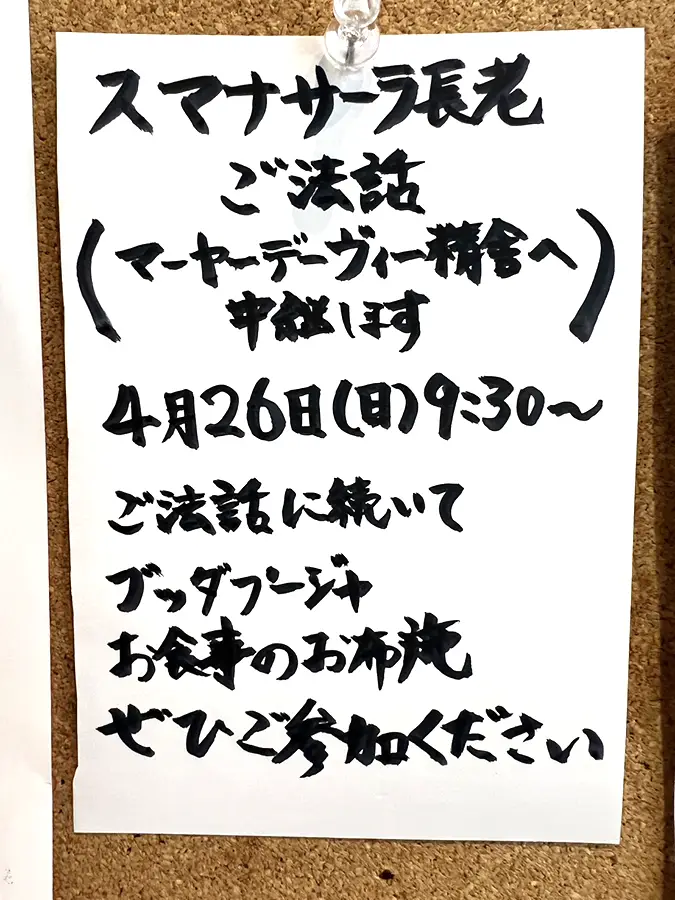 スマナサーラ長老
ご法話
(マーヤーデーヴィー精舎へ
中継します)
4月26日(日)9:30〜
ご法話に続いて
ブッダプージャ
お食事のお布施
ぜひご参加ください